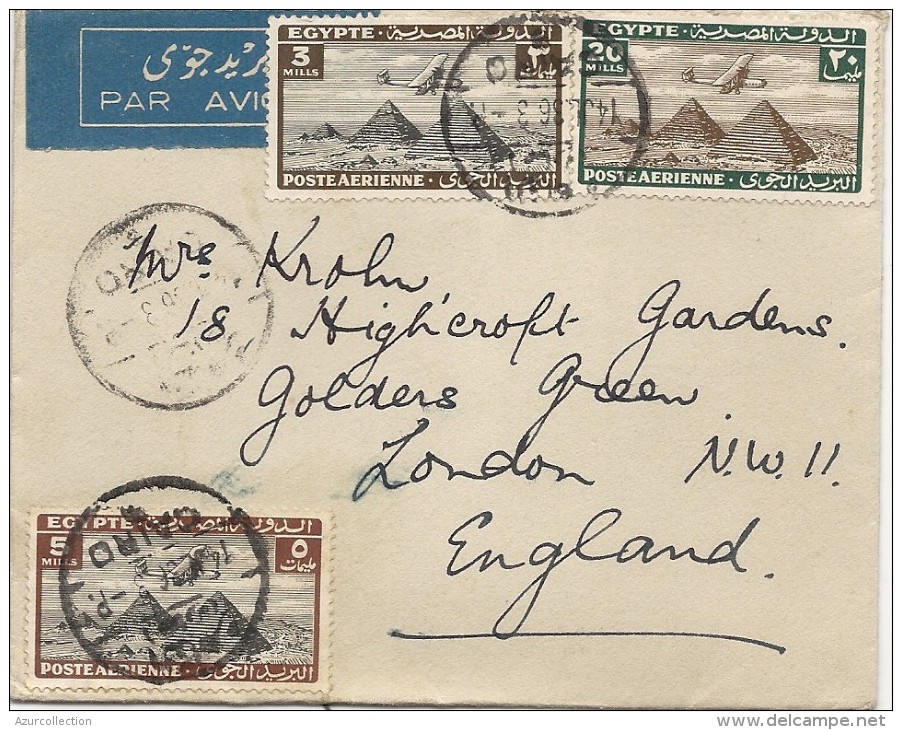 بريد جوى
PAR AVI
EGYPTE · الدولة المصرية
3 MILLS ٣ مليمات
POSTE AERIENNE · البريد الجوى
EGYPTE · الدولة المصرية
20 MILLS ٢٠ مليم
POSTE AERIENNE · البريد الجوى
CAIRO
14 JL 36 3
Mrs Krohn
18 Highcroft Gardens.
Golders Green
London N.W. 11
England.
EGYPTE · الدولة المصرية
5 MILLS ٥ مليمات
POSTE AERIENNE · البريد الجوى
CAIRO
Azurcollection
www.delcampe.net